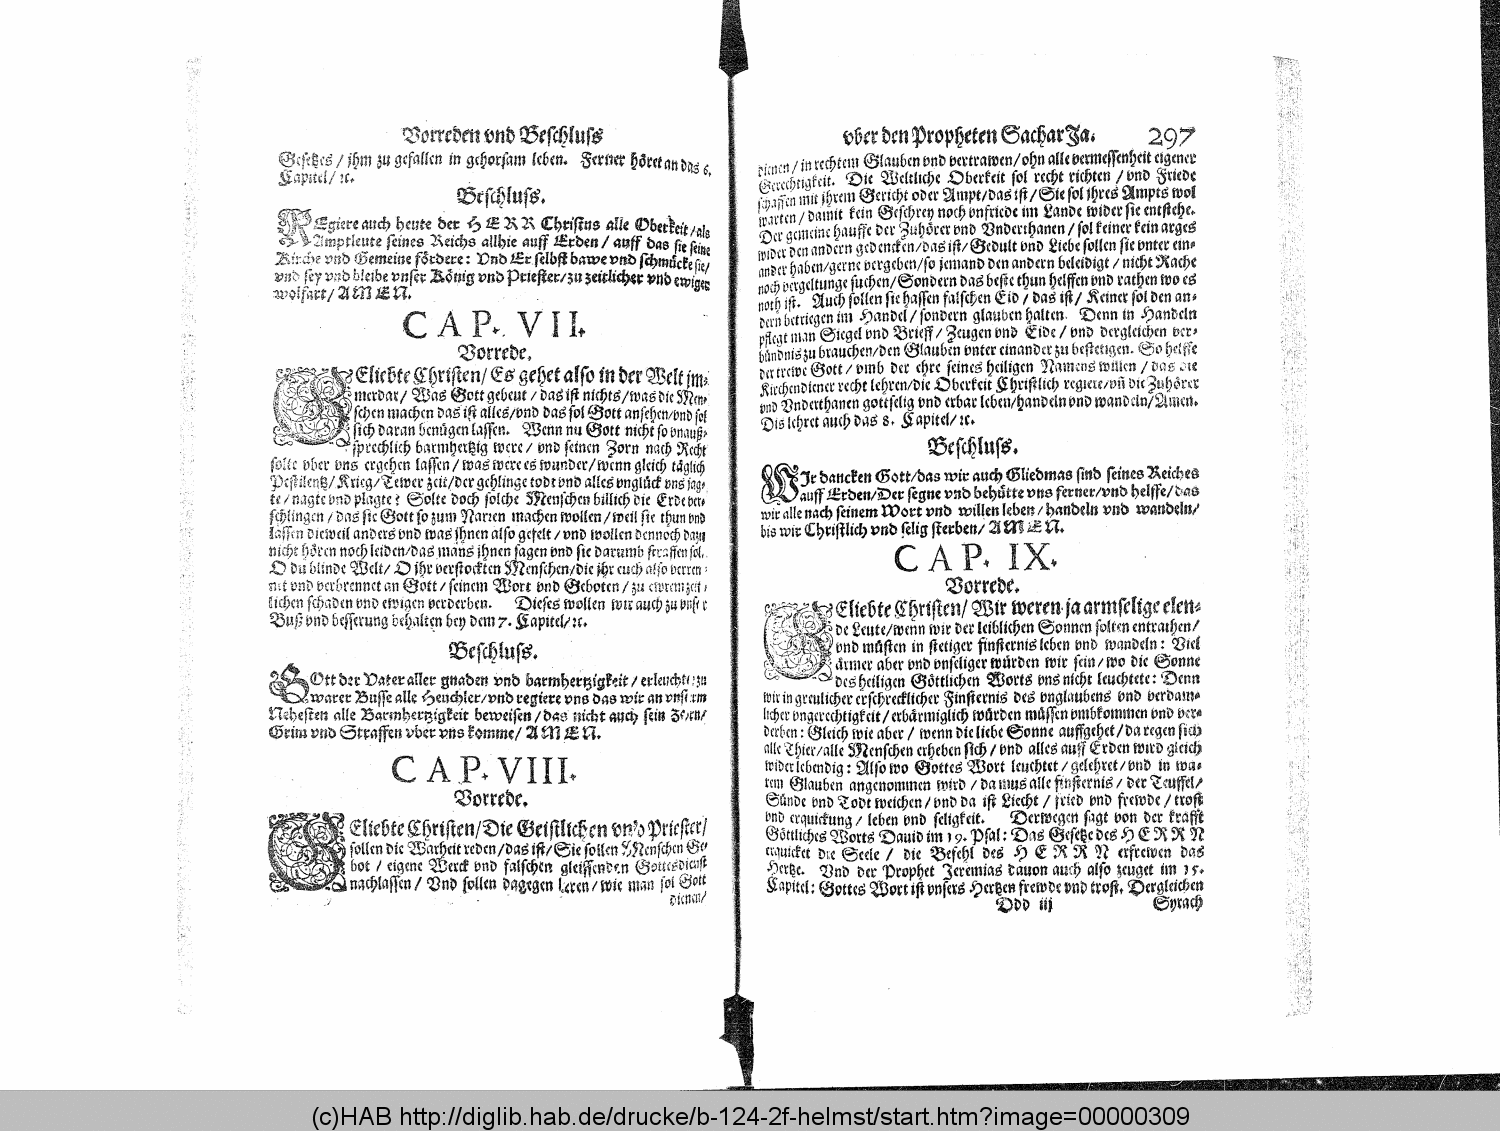 Vorreden vnd Beschluss
Gesetzes / jhm zu gefallen in gehorsam leben. Ferner höret an das 6.
Capitel / ꝛc.
Beschluss.
REgiere auch heute der HERR Christus alle Oberkeit / als
Amptleute seines Reichs allhie auff Erden / auff das sie seine
Kirche vnd Gemeine fördere: Vnd Er selbst bawe vnd schmücke sie /
vnd sey vnd bleibe vnser König vnd Priester / zu zeitlicher vnd ewiger
wolfart / AMEN.
CAP. VII.
Vorrede.
GEliebte Christen / Es gehet also in der Welt im-
merdar / Was Gott gebeut / das ist nichts / was die Men-
schen machen das ist alles / vnd das sol Gott ansehen / vnd sol
sich daran benügen lassen. Wenn nu Gott nicht so vnauß-
sprechlich barmhertzig were / vnd seinen Zorn nach Recht
solte vber vns ergehen lassen / was were es wunder / wenn gleich täglich
Pestilentz / Krieg / Tewer zeit / der gehlinge todt vnd alles vnglück vns jag-
te / nagte vnd plagte? Solte doch solche Menschen billich die Erde ver-
schlingen / das sie Gott so zum Narren machen wollen / weil sie thun vnd
lassen dieweil anders vnd was jhnen also gefelt / vnd wollen dennoch dazu
nicht hören noch leiden / das mans jhnen sagen vnd sie darumb straffen sol.
O du blinde Welt / O jhr verstockten Menschen / die jhr euch also verren-
net vnd verbrennet an Gott / seinem Wort vnd Geboten / zu ewrem zeit-
lichen schaden vnd ewigen verderben. Dieses wollen wir auch zu vnser
Buß vnd besserung behalten bey dem 7. Capitel / ꝛc.
Beschluss.
GOtt der Vater aller gnaden vnd barmhertzigkeit / erleuchte zu
warer Busse alle Heuchler / vnd regiere vns das wir an vnserm
Nehesten alle Barmhertzigkeit beweisen / das nicht auch sein Zorn /
Grim vnd Straffen vber vns komme / AMEN.
CAP. VIII.
Vorrede.
GEliebte Christen / Die Geistlichen vnd Priester /
sollen die Warheit reden / das ist / Sie sollen Menschen Ge-
bot / eigene Werck vnd falschen gleissenden Gottesdienst
nachlassen / Vnd sollen dagegen leren / wie man sol Gott
dienen /
vber den Propheten SacharJa. 297
dienen / in rechtem Glauben vnd vertrawen / ohn alle vermessenheit eigener
Gerechtigkeit. Die Weltliche Oberkeit sol recht richten / vnd Friede
schaffen mit jhrem Gericht oder Ampt / das ist / Sie sol jhres Ampts wol
warten / damit kein Geschrey noch vnfriede im Lande wider sie entstehe.
Der gemeine hauffe der Zuhörer vnd Vnderthanen / sol keiner kein arges
wider den andern gedencken / das ist / Gedult vnd Liebe sollen sie vnter ein-
ander haben / gerne vergeben / so jemand den andern beleidigt / nicht Rache
noch vergeltunge suchen / Sondern das beste thun helffen vnd rathen wo es
noth ist. Auch sollen sie hassen falschen Eid / das ist / Keiner sol den an-
dern betriegen im Handel / sondern glauben halten. Denn in Handeln
pflegt man Siegel vnd Brieff / Zeugen vnd Eide / vnd dergleichen ver-
bündnis zu brauchen / den Glauben vnter einander zu bestetigen. So helffe
der trewe Gott / vmb der ehre seines heiligen Namens willen / das die
Kirchendiener recht lehren / die Oberkeit Christlich regiere / vñ die Zuhörer
vnd Vnderthanen gottselig vnd erbar leben / handeln vnd wandeln / Amen.
Dis lehret auch das 8. Capitel / ꝛc.
Beschluss.
WIr dancken Gott / das wir auch Gliedmas sind seines Reiches
auff Erden / Der segne vnd behütte vns ferner / vnd helffe / das
wir alle nach seinem Wort vnd willen leben / handeln vnd wandeln /
bis wir Christlich vnd selig sterben / AMEN.
CAP. IX.
Vorrede.
GEliebte Christen / Wir weren ja armselige elen-
de Leute / wenn wir der leiblichen Sonnen solten entrathen /
vnd müsten in stetiger finsternis leben vnd wandeln: Viel
ärmer aber vnd vnseliger würden wir sein / wo die Sonne
des heiligen Göttlichen Worts vns nicht leuchtete: Denn
wir in greulicher erschrecklicher Finsternis des vnglaubens vnd verdam-
licher vngerechtigkeit / erbärmiglich würden müssen vmbkommen vnd ver-
derben: Gleich wie aber / wenn die liebe Sonne auffgehet / da regen sich
alle Thier / alle Menschen erheben sich / vnd alles auff Erden wird gleich
wider lebendig: Also wo Gottes Wort leuchtet / gelehret / vnd in wa-
rem Glauben angenommen wird / da mus alle finsternis / der Teuffel /
Sünde vnd Todt weichen / vnd da ist Liecht / fried vnd frewde / trost
vnd erquickung / leben vnd seligkeit. Derwegen sagt von der krafft
Göttliches Worts Dauid im 19. Psal: Das Gesetze des HERRN
erquicket die Seele / die Befehl des HERRN erfrewen das
Hertze. Vnd der Prophet Jeremias dauon auch also zeuget im 15.
Capitel: Gottes Wort ist vnsers Hertzen frewde vnd trost. Dergleichen
Ddd iij Syrach
(c)HAB http://diglib.hab.de/drucke/b-124-2f-helmst/start.htm?image=00000309